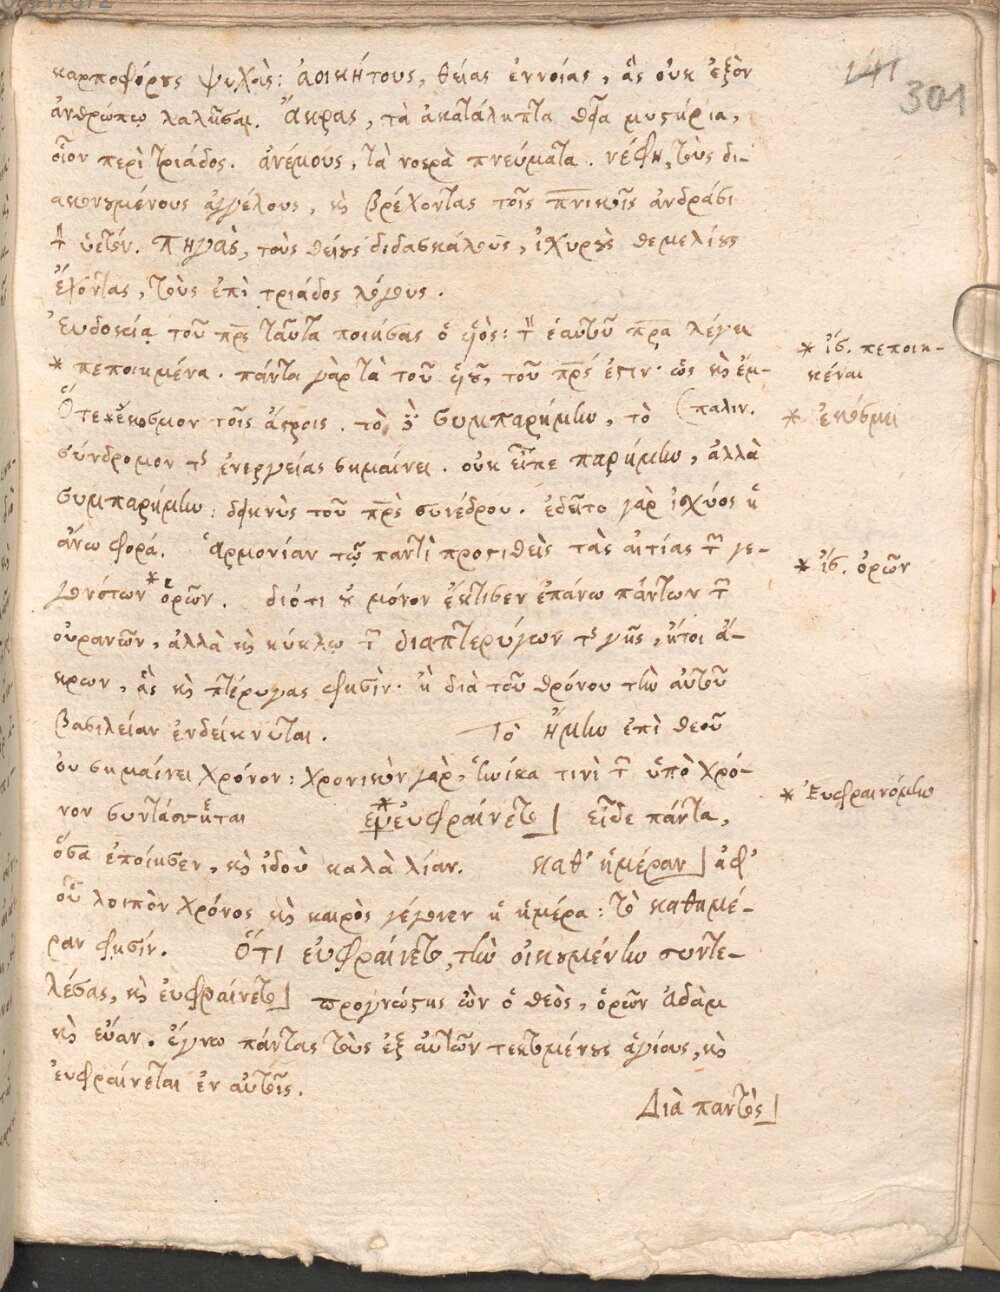 141
301
καρποφόρους ψυχάς: ἀοικήτους, θείας ἐννοίας, ἃς οὐκ ἐξὸν
ἀνθρώπῳ λαλῆσαι. Ἄκρας, τὰ ἀκατάληπτα θεῖα μυστήρια,
οἷον περὶ τριάδος. ἀνέμους, τὰ νοερὰ πνεύματα. νέφη, τοὺς δι-
ακονουμένους ἀγγέλους, καὶ βρέχοντας τοῖς πνικοῖς ἀνδράσι
τὸν ὑετόν. πηγὰς, τοὺς θείους διδασκάλους, ἰχυροὺς θεμελίους
ἔχοντας, τοὺς ἐπὶ τριάδος λόγους.
Ἐυδοκίᾳ τοῦ πρς ταῦτα ποιήσας ὁ υἱός: τὸν ἑαυτοῦ πρα λέγει
* πεποιημένα. πάντα γὰρ τὰ τοῦ υἱοῦ, τοῦ πρς ἐστιν· ὡς καὶ ἐμ-
(παλιν.
Ὅτε * ἐκόσμον τοῖς ἄστροις. τὸ δὲ συμπαρήμην, τὸ
σύνδρομον τῆς ἐνεργείας σημαίνει. οὐκ εἶπε παρήμην, ἀλλὰ
συμπαρήμην: δεικνὺς τοῦ πρς συνέδρου. ἐδεῖτο γὰρ ἰσχύος ἡ
ἄνω φορά. Ἁρμονίαν τῷ παντὶ προστιθεὶς τὰς αἰτίας τῶν γε-
γονότων * ὁρῶν. διότι οὐ μόνον ἔκτισεν ἐπάνω πάντων τῶν
οὐρανῶν, ἀλλὰ καὶ κύκλῳ τῶν διαπτερύγων τῆς γῆς, ἤτοι ἄ-
κρων, ἃς καὶ πτέρυγας φησὶν· ἢ διὰ τοῦ θρόνου τὴν αὐτοῦ
βασιλείαν ἐνδείκνυται. Τὸ ἤμην ἐπὶ θεοῦ
οὐ σημαίνει χρόνον: χρονικὸν γὰρ, ἡνίκα τινὶ τῶν ὑπὸ χρό-
νον συντάσσηται * εὐφραίνετο] εἶδε πάντα,
ὅσα ἐποίησεν, καὶ ἰδοὺ καλὰ λίαν. καθ' ἡμέραν] ἀφ'
οὗ λοιπὸν χρόνος καὶ καιρὸς γέγονεν ἡ ἡμέρα: τὸ καθημέ-
ραν φησίν. Ὅτι εὐφραίνετο, τὴν οἰκουμένην συντε-
λέσας, καὶ ἐυφραίνετο] προγνώστης ὢν ὁ θεὸς, ὁρῶν ἀδὰμ
καὶ εὔαν. ἔγνω πάντας τοὺς ἐξ αὐτῶν τεκομένους ἁγίους, καὶ
ἐυφραίνεται ἐν αὐτοῖς.
Διὰ παντὸς]
* ἴσ. πεποιη-
κέναι
* ἐκόσμει
* ἴσ. ὁρῶν
* Ἐυφραινόμην